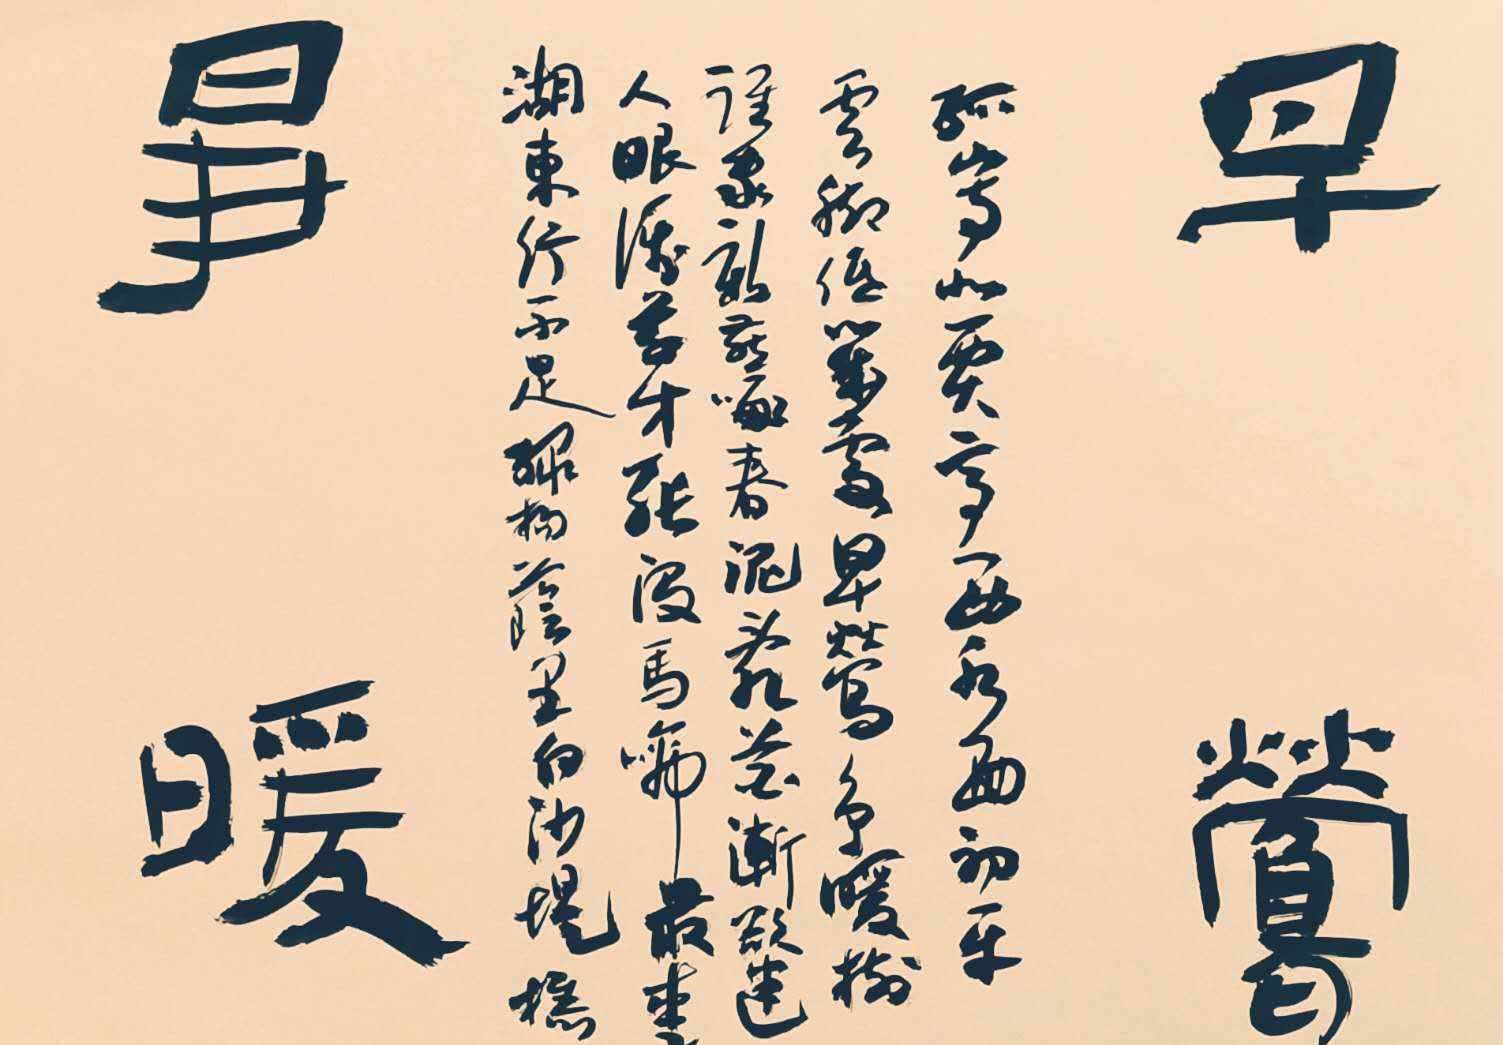 早鶯
孤山寺北賈亭西水面初平
雲腳低幾處早鶯爭暖樹
誰家新燕啄春泥亂花漸欲迷
人眼淺草才能沒馬蹄最愛
湖東行不足綠楊蔭里白沙堤
爭暖